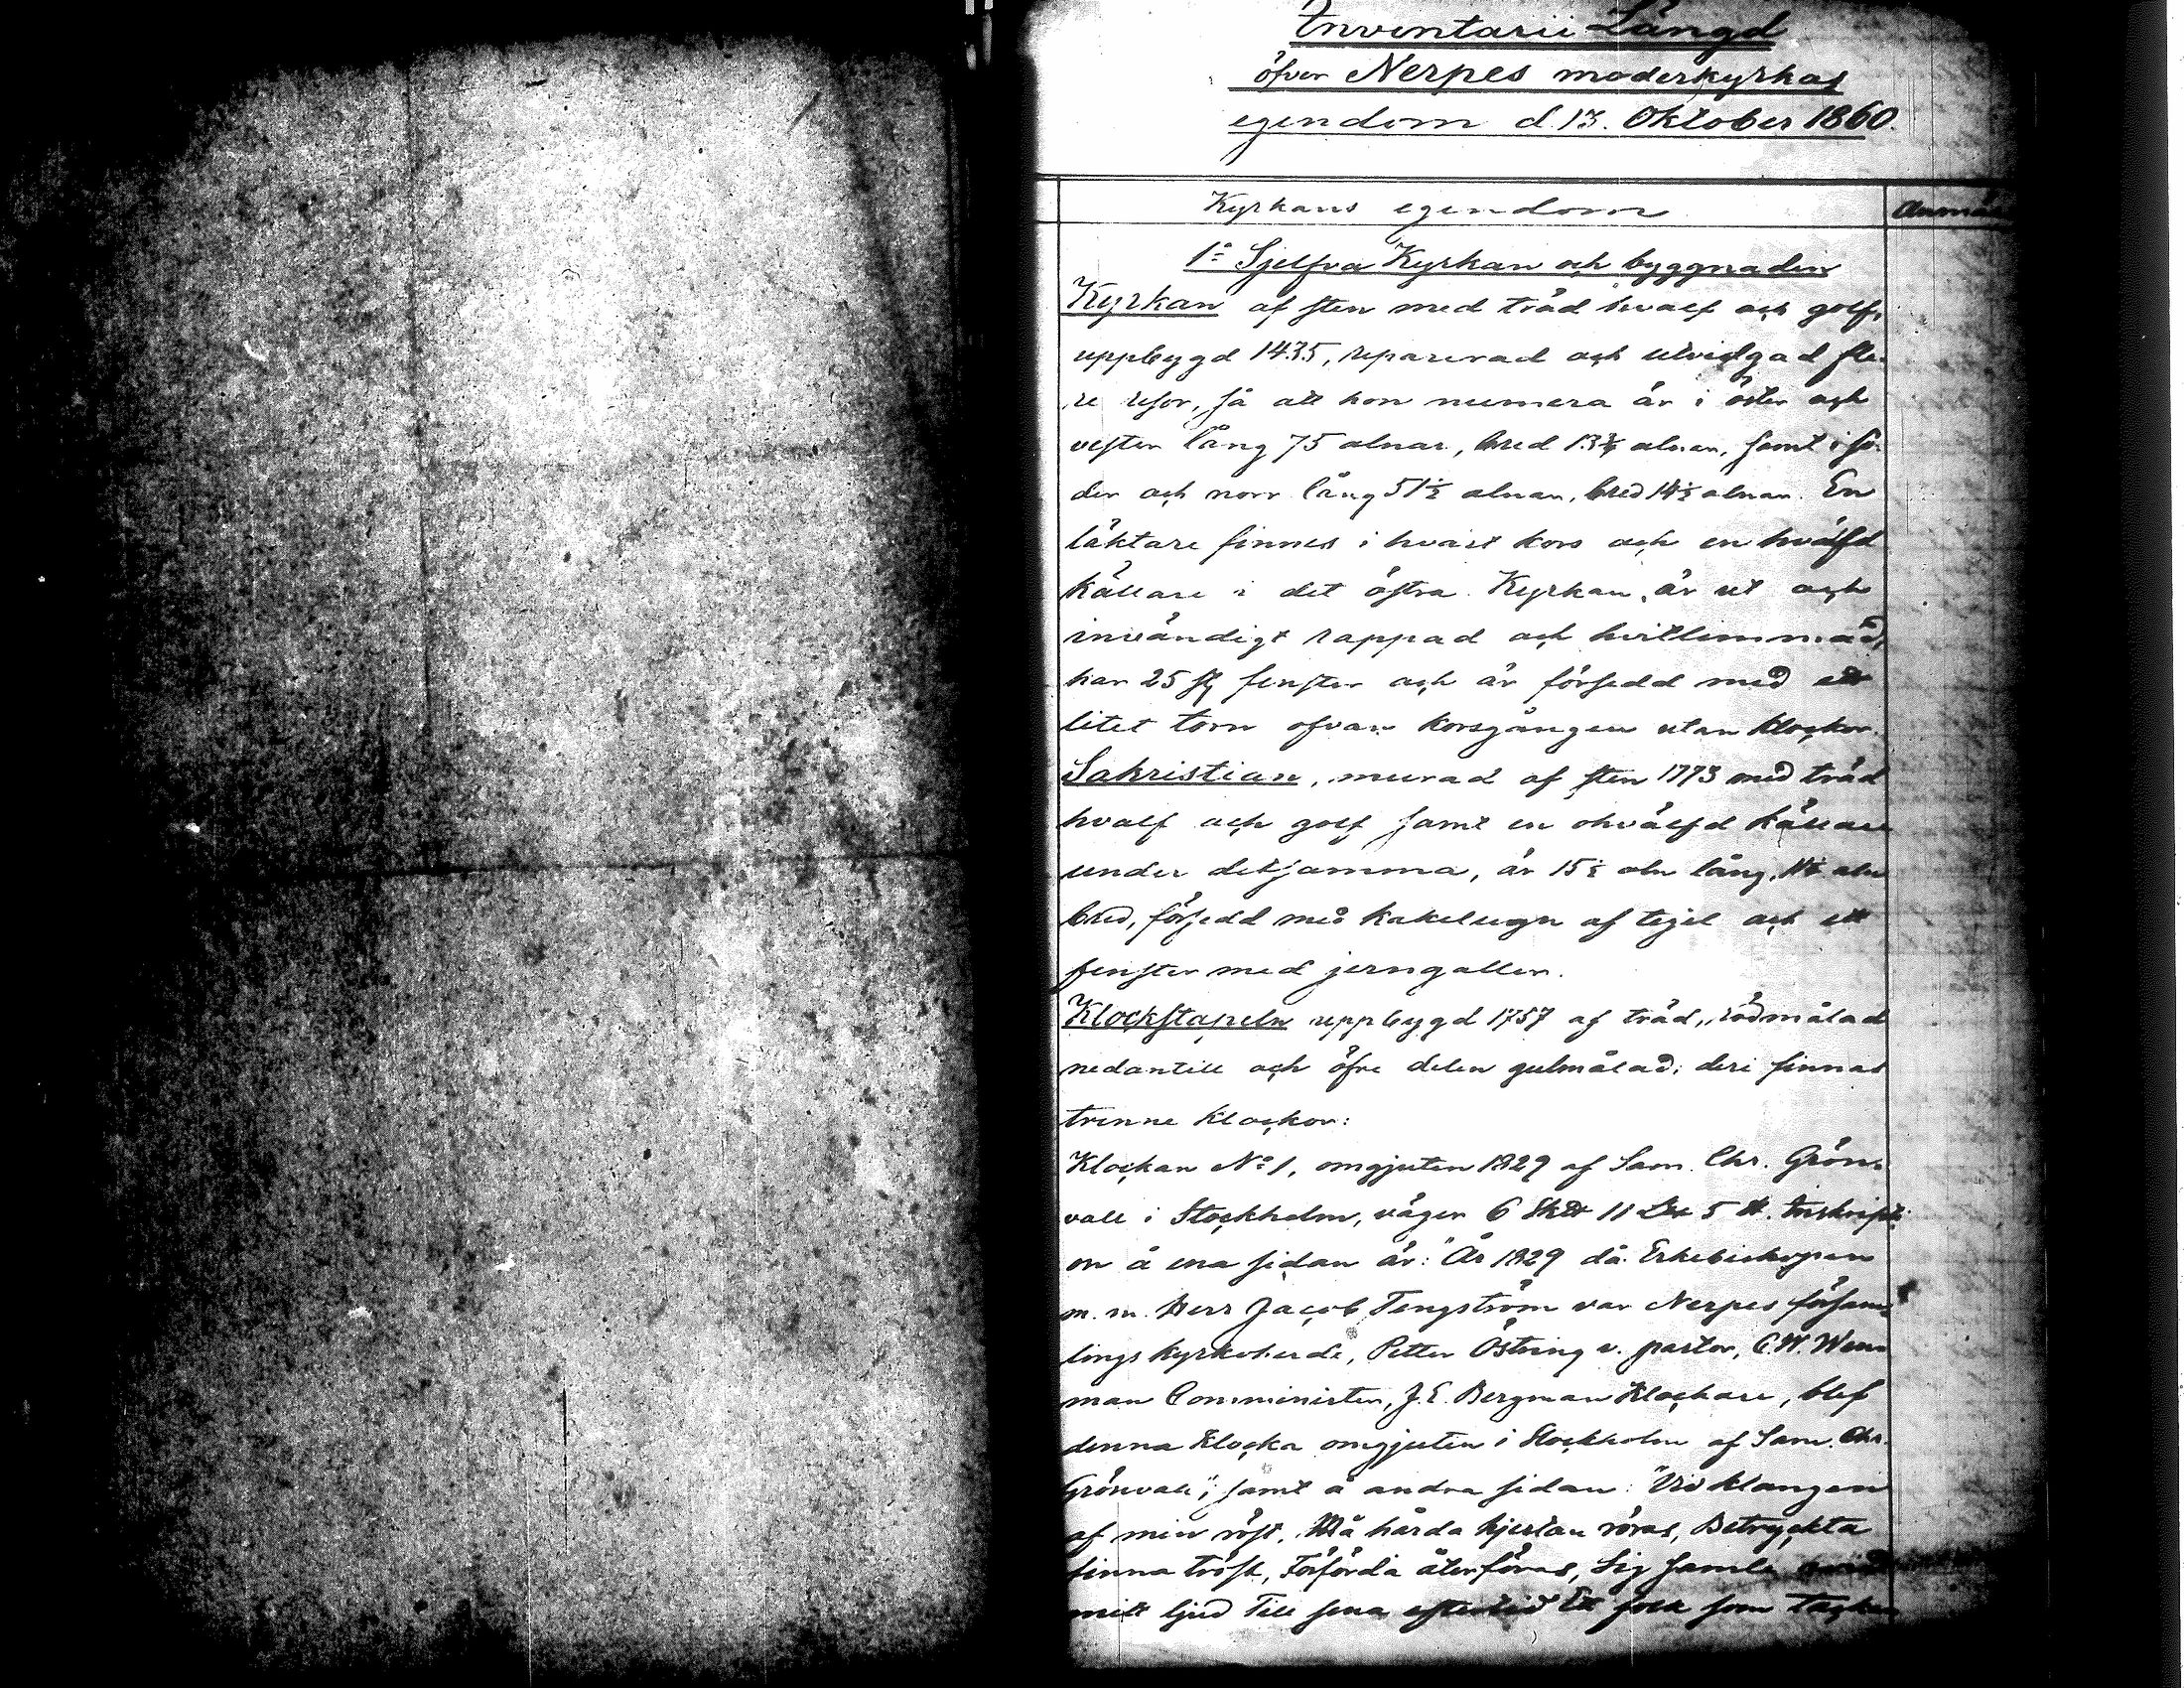 Inventarii Längd
öfver Nerpes moderkyrkas
egendom d. 13. Oktober 1860.
Kyrkans egendom
1:o Sjelfva Kyrkan och byggnaden
Kyrkan af sten med träd hvalf och golf,
uppbygd 1435, reparerad och utvidgad fle-
re resor, så att hon numera är i öster och
vester lång 75 alnar, bred 13 3/4 alnar, samt i sö-
der och norr lång 51 1/2 alnar, bred 14 1/2 alnar. En
läktare finnes i hvart kors och en hvälfd
källare i det östra. Kyrkan är ut och
invändigt rappad och hvitlimmad,
har 25 st fenster och är försedd med ett
litet torn ofvan korsgången utan klockor.
Sakristian, murad af sten 1773 med träd
hvalf och golf samt en ohvälfd källare
under detsamma, är 15 1/2 aln lång, aln
bred, försedd med kakelugn af tegel och ett
fenster med jerngaller.
Klockstapeln uppbygd 1757 af träd, rödmålad
nedantill och öfre delen gulmålad; deri finnas
trenne klockor:
Klockan No 1, omgjuten 1829 af Sam. Chr. Grön-
vall i Stockholm, väger 6 Sk℔ 11 L℔ 5 ℔. Inskripti-
on å ena sidan är: "År 1829 då Erkebiskopen
m. m. Herr Jacob Tengström var Nerpes försam-
lings kyrkoherde, Petter Östring v. pastor, C. W. Wen-
man Comminister, J. E. Bergman Klockare, blef
denna Klocka omgjuten i Stockholm af Sam. Chr.
Grönvall", samt å andra sidan: "Vid klangen
af min röst, Må hårda hjertan röras, Betryckta
finna tröst, Förförda återföras, Sig samle vid
mitt ljud Till sena eftertid Ett folk som